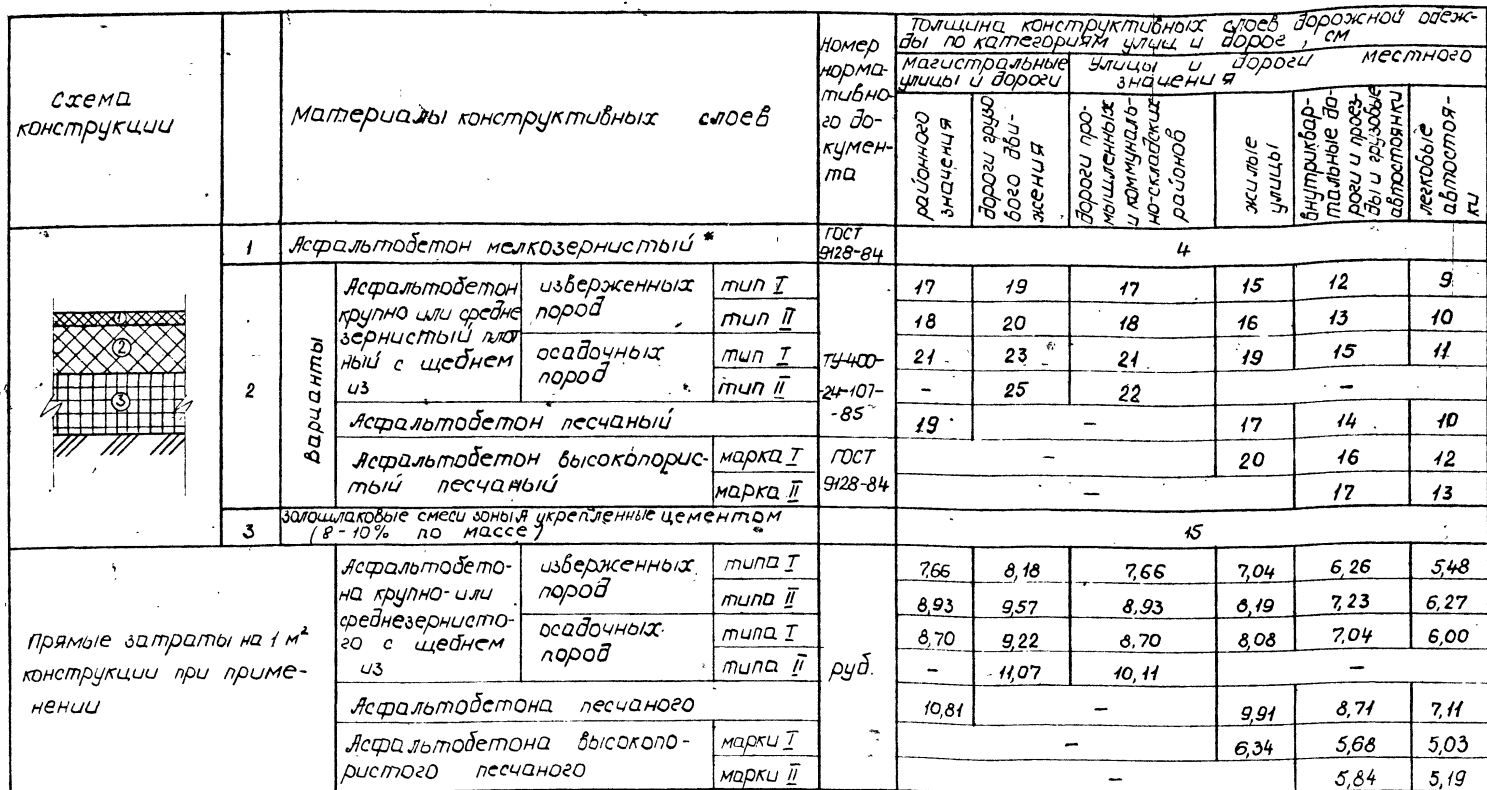 схема
конструкции
Материалы конструктивных слоев
Номер
норма-
тивно-
го до-
кумен-
та
Толщина конструктивных слоев дорожной одеж-
ды по категориям улиц и дорог, см
магистральные
улицы и дороги
Улицы и дороги местного
значения
районного
значения
дороги грузо
вого дви-
жения
дороги про-
мышленных
и коммуналь-
но-складских
районов
жилые
улицы
внутриквар-
тальные до-
роги и проез-
ды и грузовые
автостоянки
легковые
автостоян-
ки
1 Асфальтобетон мелкозернистый * ГОСТ 9128-84 4
1
2
3
2
Варианты
Асфальтобетон
крупно или средне
зернистый плот
ный с щебнем
из
изверженных
пород
тип I 17 19 17 15 12 9
тип II 18 20 18 16 13 10
осадочных
пород
тип I 21 23 21 19 15 11
тип II - 25 22 -
ТУ-400-
24-107-
-85
Асфальтобетон песчаный 19 - 17 14 10
Асфальтобетон высокопорис-
тый песчаный
ГОСТ
9128-84
марка I - 20 16 12
марка II - 17 13
3
золошлаковые смеси укрепленные цементом
(8-10% по массе)
15
Прямые затраты на 1 м²
конструкции при приме-
нении
Асфальтобето-
на крупно- или
среднезернисто-
го с щебнем
из
изверженных
пород
типа I 7,66 8,18 7,66 7,04 6,26 5,48
типа II 8,93 9,57 8,93 8,19 7,23 6,27
осадочных
пород
типа I 8,70 9,22 8,70 8,08 7,04 6,00
типа II - 11,07 10,11 -
руб.
Асфальтобетона песчаного 10,81 - 9,91 8,71 7,11
Асфальтобетона высокопо-
ристого песчаного
марки I - 6,34 5,68 5,03
марки II - 5,84 5,19